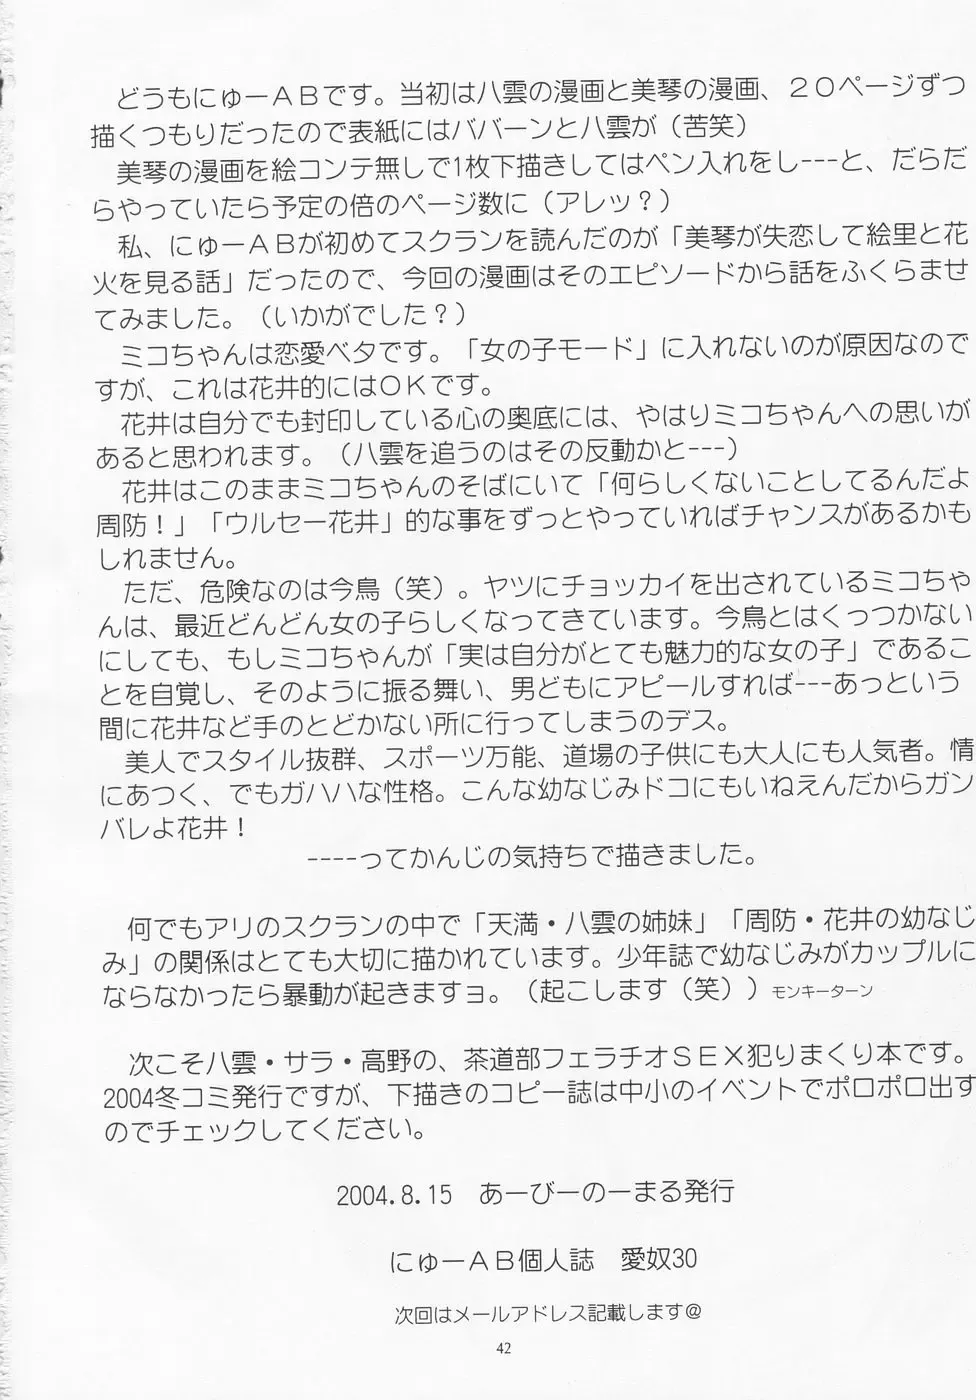 どうもにゅーＡＢです。当初は八雲の漫画と美琴の漫画、２０ページずつ
描くつもりだったので表紙にはババーンと八雲が（苦笑）
美琴の漫画を絵コンテ無しで1枚下描きしてはペン入れをし---と、だらだ
らやっていたら予定の倍のページ数に（アレッ？）
私、にゅーＡＢが初めてスクランを読んだのが「美琴が失恋して絵里と花
火を見る話」だったので、今回の漫画はそのエピソードから話をふくらませ
てみました。（いかがでした？）
ミコちゃんは恋愛ベタです。「女の子モード」に入れないのが原因なので
すが、これは花井的にはＯＫです。
花井は自分でも封印している心の奥底には、やはりミコちゃんへの思いが
あると思われます。（八雲を追うのはその反動かと---）
花井はこのままミコちゃんのそばにいて「何らしくないことしてるんだよ
周防！」「ウルセー花井」的な事をずっとやっていればチャンスがあるかも
しれません。
ただ、危険なのは今鳥（笑）。ヤツにチョッカイを出されているミコちゃ
んは、最近どんどん女の子らしくなってきています。今鳥とはくっつかない
にしても、もしミコちゃんが「実は自分がとても魅力的な女の子」であるこ
とを自覚し、そのように振る舞い、男どもにアピールすれば---あっという
間に花井など手のとどかない所に行ってしまうのデス。
美人でスタイル抜群、スポーツ万能、道場の子供にも大人にも人気者。情
にあつく、でもガハハな性格。こんな幼なじみドコにもいねえんだからガン
バレよ花井！
----ってかんじの気持ちで描きました。
何でもアリのスクランの中で「天満・八雲の姉妹」「周防・花井の幼なじ
み」の関係はとても大切に描かれています。少年誌で幼なじみがカップルに
ならなかったら暴動が起きますョ。（起こします（笑））モンキーターン
次こそ八雲・サラ・高野の、茶道部フェラチオＳＥＸ犯りまくり本です。
2004冬コミ発行ですが、下描きのコピー誌は中小のイベントでポロポロ出す
のでチェックしてください。
2004.8.15　あーびーのーまる発行
にゅーＡＢ個人誌　愛奴30
次回はメールアドレス記載します＠
42